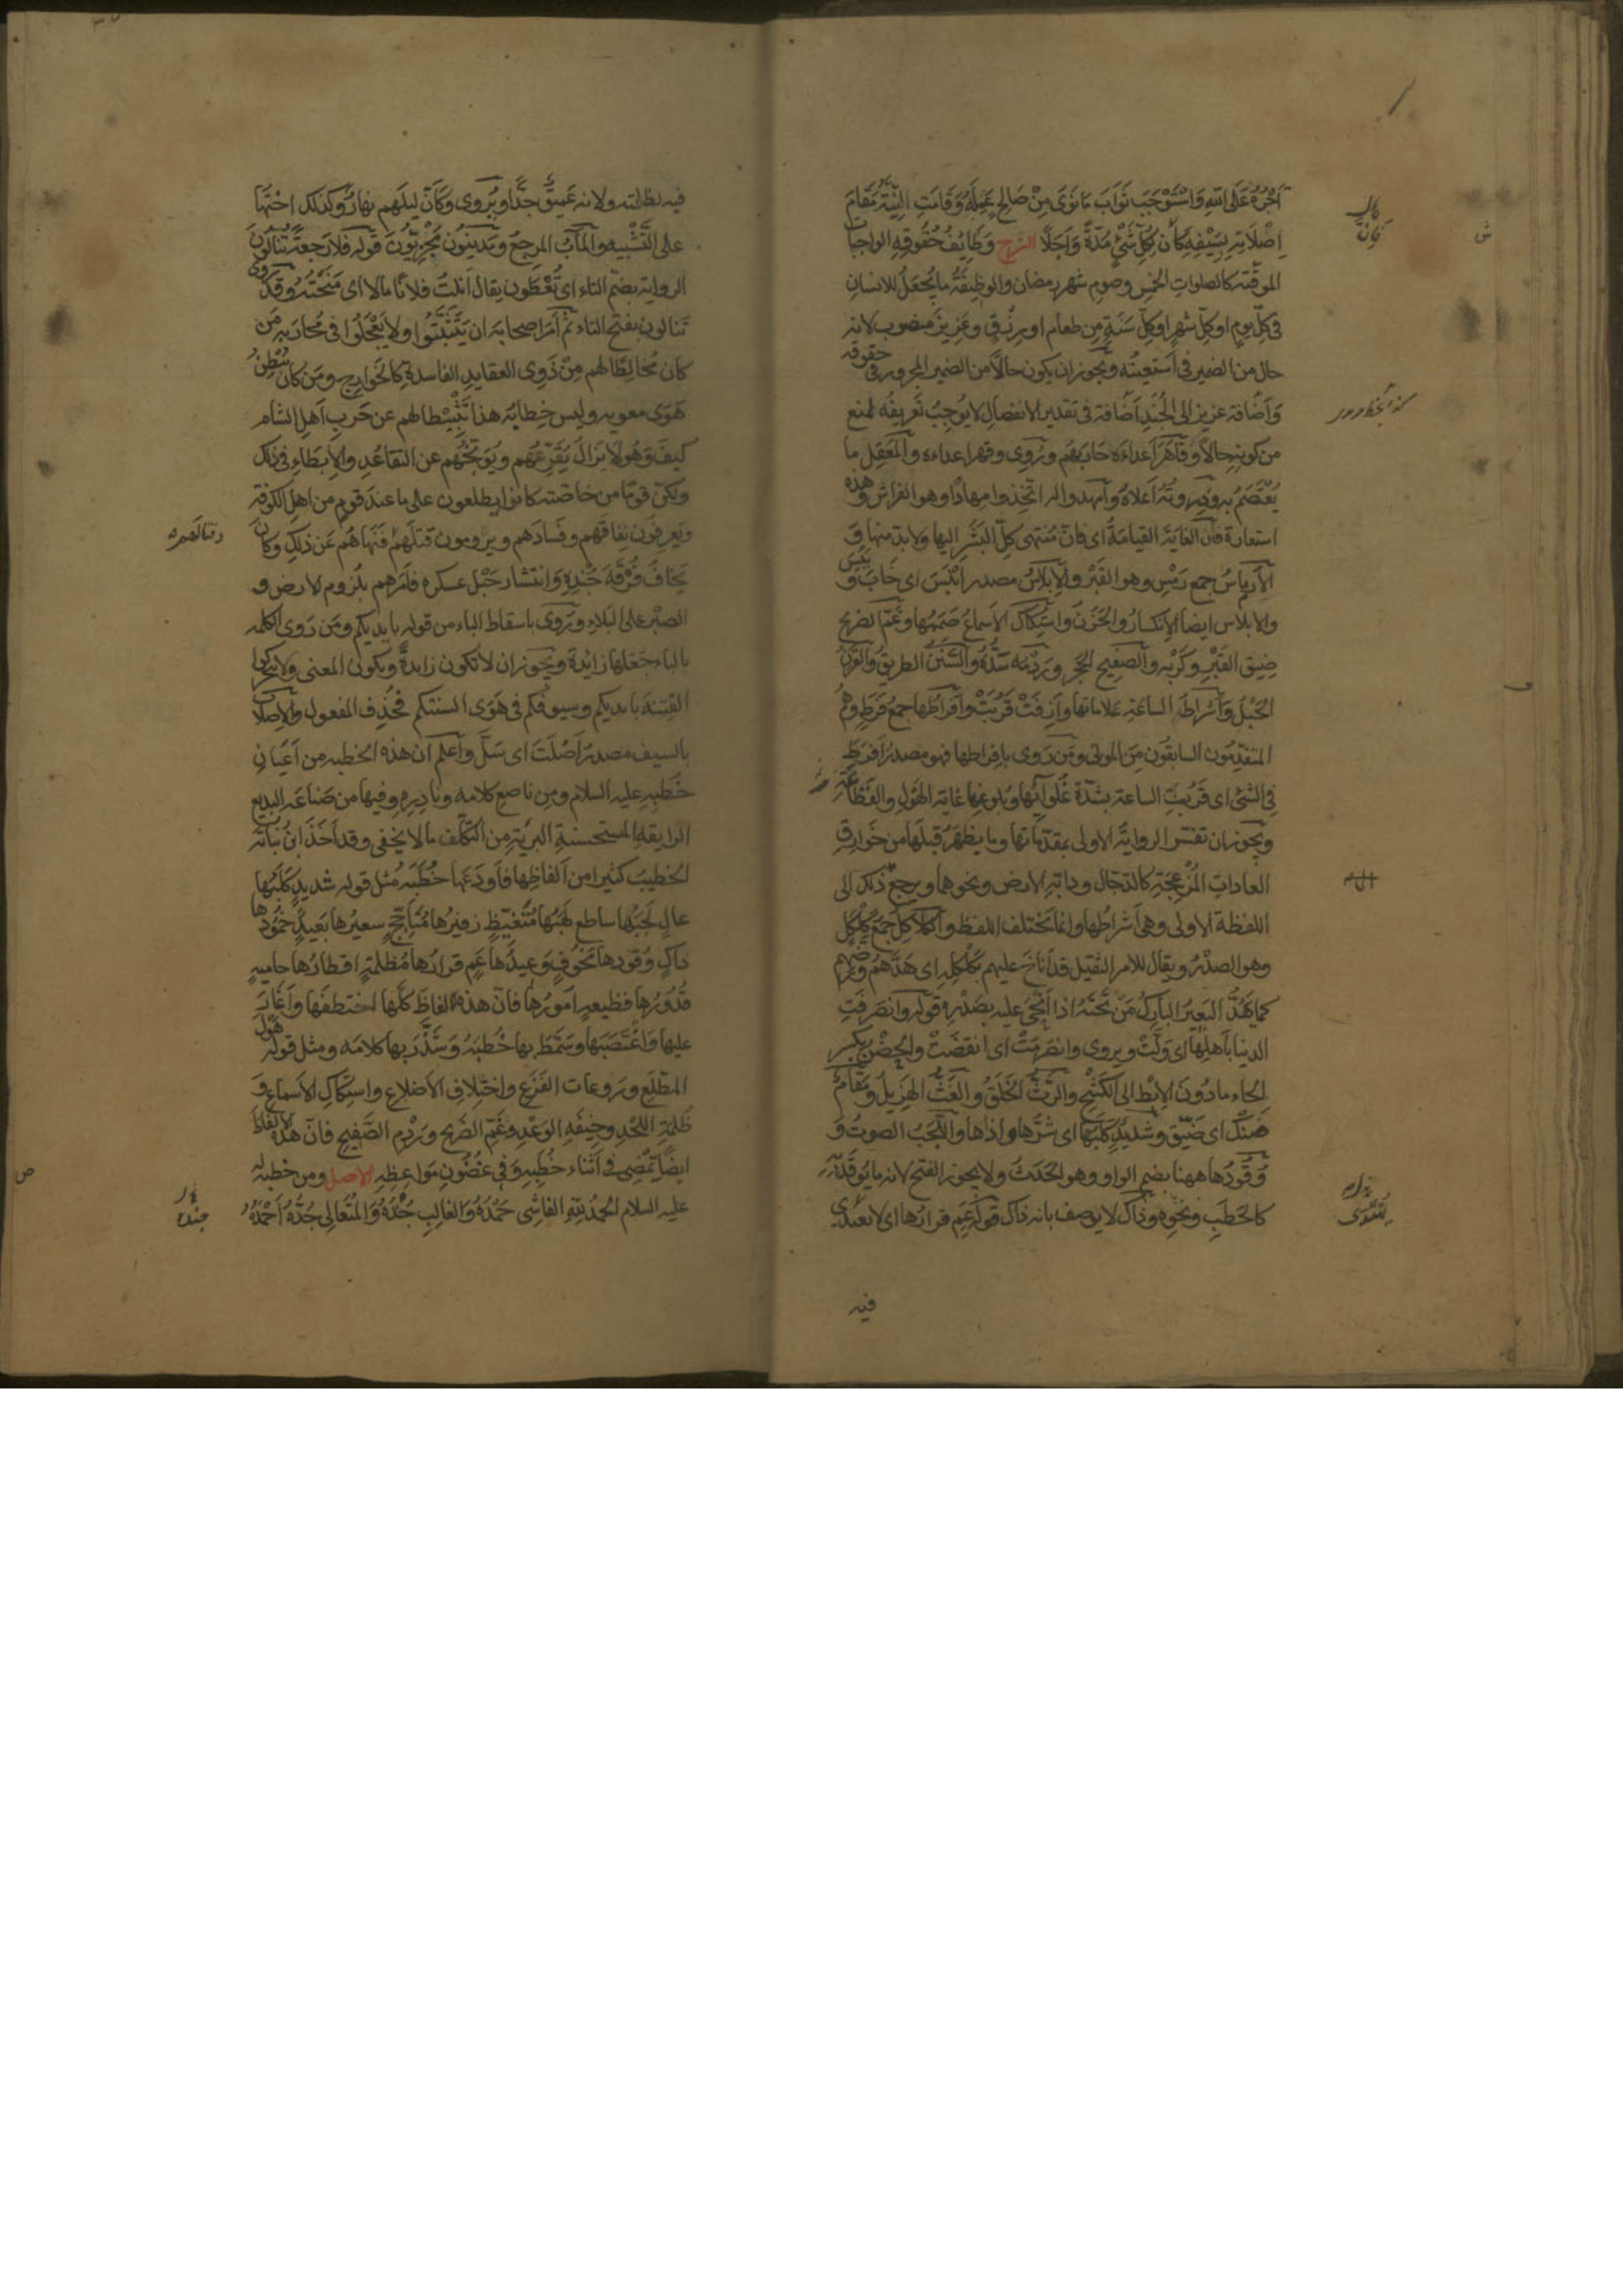 أَجْرُهُ عَلَى اللهِ وَاسْتَوْجَبَ ثَوَابَ مَا نَوَى مِنْ صَالِحِ عَمَلِهُ وَقَامَتِ النِّيَّةُ مَقَامَ
اِصْلَاتِهِ بِسَيْفِهِ كَأَنَّ لِكُلِّ شَيْءٍ مُدَّةً وَاَجَلًا الشرح وَظَائِفُ حُقُوقِهِ الواجبات
الموقّتة كالصلوات الخمس وصوم شهر رمضان والوظيفَةُ ما يُجعَلُ للانسانِ
فى كلّ يومٍ اوكلّ شهرٍ اوكلّ سَنَةٍ مِن طعامٍ او رِزْقٍ وعَزيزَ منصوب لانه
حال من الضمير فى أستعينُه ويجوز ان يكون حالًا من الضمير المجرور فى حقوقه
وَاِضَافة عزيز الى الجُندِ اِضَافة فى تقدير الانفصال لايُوجِبُ تعريفَه لمنع
من كونهِ حالاً وقَاهَرَ أعداءَه حَارَبَهُم ويُروى وقهر اعداءه والمَعْقِل ما
يُعْتَصَمُ به وذِروتُهُ أعلاهُ وَامهدوا له اتّخِذوا مِهادًا وهو الفراش وهذه
استعارة فَاِنّ الغايَةَ القيامَةُ اى فانّ مُنتهى كلّ البَشَرِ اليها ولا بدّ منها وَ
الأرماسُ جمع رَمْسٍ وهو القَبْرُ والإبلاسُ مصدر اَبْلَسَ اى خَابَ وَ يَئِسَ
والابلاس ايضا الاِنكسارُ والحَزَنُ واستِكَاكُ الأسماعِ صَمَمُها وغَمّ الضريح
ضِيقُ القَبْرِ وكَرْبُه والصفيح الحَجَر ورَدْمُه سَدُّهُ والسَّنَنُ الطريقُ والقَرَنُ
الحَبْلُ وَأشراطُ الساعَةِ علاماتُها وأَزِفَتْ قَرُبَتْ وأَفْرَاطُها جمعُ فَرَطٍ وهُمُ
المتقدّمون السابقُونَ مِنَ الموتى ومَن رَوى بافراطها فهو مصدرُ أفرَطَ
فى الشئ اى قَرُبَتِ الساعة بشدّة غُلَوائِها وبلوغِها غاية الهَوْلِ والفَظَاعَةِ
ويجوز ان تفسّر الروايةُ الاولى بمقدّماتها وما يظهَرُ قبلَها من خَوَارِقِ
العاداتِ المُزْعِجَةِ كالدّجّال ودابّة الارض ونحوهما ويرجع ذلك الى
اللفظة الاولى وهى أشراطُها وانما يختلف اللفظ والكلاكِلُ جمعُ كَلْكَلٍ
وهو الصدْرُ ويقال للامر الثقيل قد أناخَ عليهم بكَلْكَلِهِ اى هَدَّهُم ورَضَّهم
كما يَهُدُّ البَعيرُ البارِكُ مَن تَحْتَهُ اذا أَنْحَى عليه بصَدْرِه قوله وانصَرَفَتِ
الدنيا بأهلِها اى وَلَّتْ ويروى وانصَرَمَتْ اى انقَضَتْ والحِضْنُ بكسر
الحاء مادونَ الاِبْطِ الى الكَشْحِ والرَّثُّ الخَلَقُ والغَثُّ الهَزِيلُ ومَقَامٌ
ضَنْكٌ اى ضَيّق وشَديدٌ كَلَبُها اى شَرُّها واَذاها واللَّجَبُ الصوتُ وَ
وُقُودُها ههنا بضم الواو وهو الحَدَثُ ولا يجوز الفتح لانه ما يُوقَدُ به
كالحَطَبِ ونَحوِه وذاكَ لا يوصف بانه ذاكٍ قوله عَمٍ قرارُها اى لا يُهتَدى
فيه
كَأَنَّ
فيه لظلمته ولانه عَميقٌ جدًّا ويُروى وكَأنَّ ليلَهم نهارٌ وكذلك اختُها
على التَّشْبيه والمآبُ المرجِعُ ومَدينُون مَجْزِيّونَ قوله فلا رجعةً تُنالُونَ
الرواية بضمّ التاء اى تُعْطَون يقال أنَلتُ فلانًا مالا اى مَنَحْتُه وقد رُوى
تَنالون بفتح التاء ثم أمَر اصحابَه ان يَتَثَبَّتُوا ولا يَعْجَلُوا فى مُحاربة مَن
كان مُخالِطًا لهم مِنْ ذَوِى العقايدِ الفاسدة كالخوارج ومَن كان يُبْطِنُ
هَوَى معويه وليس خِطابُه هذا تَثْبِيطا لهم عن حَربِ اَهلِ الشام
كيفَ وَهُو لا يَزالُ يُقَرّعُهم ويُوبّخُهم عن التقاعُدِ والإبطاءِ فى ذلك
ولكنّ قومًا من خاصّته كانوا يطلعون على ما عندَ قومٍ من اهل الكوفة
ويَعرِفُون نِفاقَهم وفسادَهم ويرومون قتلَهم فنَهَاهُم عَن ذلك وكانَ
يَخافُ فُرْقَةَ جُنْدِهِ وَانتشار حَبْل عسكره فاَمَرهم بلُزوم الارض و
الصبْر على البَلاءِ ويُروى باسقاط الباء من قوله بايديكم ومَن رَوى الكلمة
بالباء جَعَلها زائدةً ويجوز ان لا تكون زايدةً ويكون المعنى ولا تحركوا
الفِتنة بايديكم وسيوفكم فى هَوَى السنتكم فحُذِف المفعول والاِصْلاتُ
بالسيف مصدرُ أصْلَتَ اى سَلَّ واعلم ان هذه الخطبه من أعيانِ
خُطَبِهِ عليه السلام ومن ناصع كلامه ونادرِهِ وفيها من صَناعة البديع
الرايقه المستحسنةِ البَريّة من التكلّف ما لا يخفى وقد أخَذَ ابنُ نباتة
الخطيبُ كثيرا من ألفاظِها فأودَعَها خُطَبَه مثل قوله شديدٌ كَلَبُها
عالٍ لَجَبُها ساطع لهَبُها مُتَغيّظٍ زفيرُها مُتَأَجّجٍ سعيرُها بَعيدٍ خمُودُها
ذاكٍ وُقودُها مَخُوفٍ وَعيدُها عَمٍ قرارُها مُظلمةٍ اقطارُها حاميةٍ
قُدُورُها فظيعةٍ امورُها فانّ هذه الفاظٌ كلّها اختطفَها وأغَارَ
عليها واغْتَصَبَها وسَمَّطَ بها خُطَبَهُ وَشَذَّرَ بها كلامَه ومثل قوله هَوْلَ
المطّلَعِ ورَوعات الفَزَعِ واختلافِ الأضلاعِ واستِكَاكِ الأسماعِ وَ
ظُلمَةِ اللَّحْدِ وخِيفَةِ الوَعْدِ وغَمِّ الضَريح ورَدْمِ الصَّفِيح فانّ هذه الالفاظَ
ايضًا تَمْضِى فى أثناء خُطَبِه وَفى غضُونِ مَواعظِه الاصل ومن خطبة له
عليه السلام الحَمدُ لِلّهِ الفاشِى حَمْدُهُ والغالِبِ جُنْدُهُ والمُتَعَالِى جَدُّهُ أحْمَدُهُ